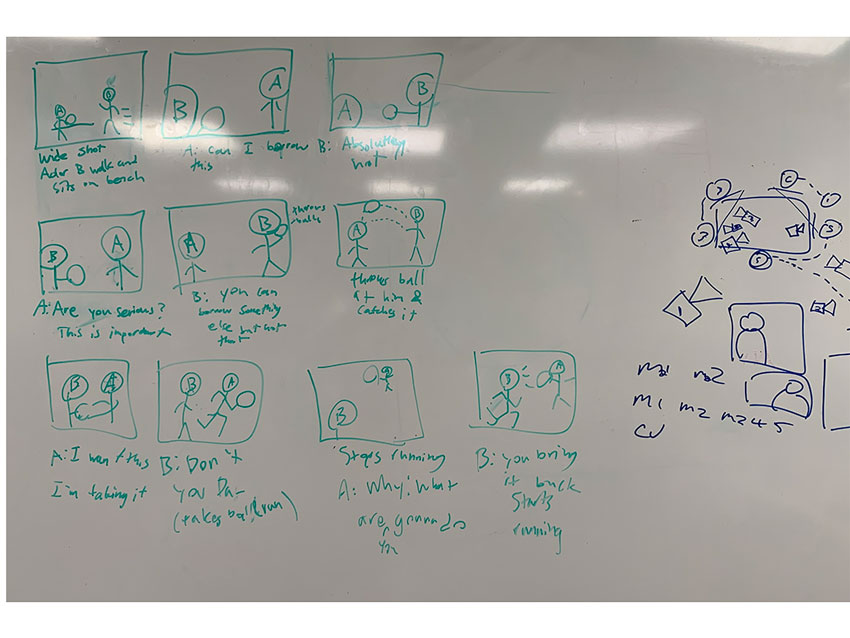 A
B
wide shot
Actor B walk and
sits on bench
B
A
A: can I borrow
this
A
B
B: Absolutley
not
B
A
A: Are you serious?
This is important
A
B
throws
B: you can
borrow something
else but not
that
A
B
throws ball
at him &
catches it
B
A
A: I want this
I'm taking it
B
A
B: Don't
you Da-
(takes ball & run)
B
Stops running
A: Why? What
are gonna do
you
B
A
B: you bring
it back
Starts
running
1
M1 m2 m3 4 5